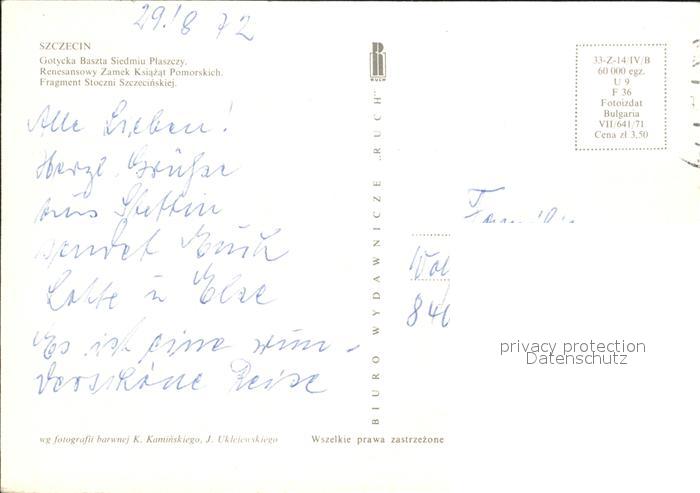 29./8 72
SZCZECIN
Gotycka Baszta Siedmiu Płaszczy.
Renesansowy Zamek Książąt Pomorskich.
Fragment Stoczni Szczecińskiej.
Alle Lieben!
Herzl. Grüße
aus Stettin
sendet Euch
Lotte u Else
Es ist eine wun-
derschöne Reise
wg fotografii barwnej K. Kamińskiego, J. Uklejewskiego
RUCH
BIURO WYDAWNICZE „RUCH"
Wszelkie prawa zastrzeżone
33-Z-14/IV/B
60 000 egz.
U 9
F 36
Fotoizdat
Bulgaria
VII/641/71
Cena zł 3,50
privacy protection
Datenschutz